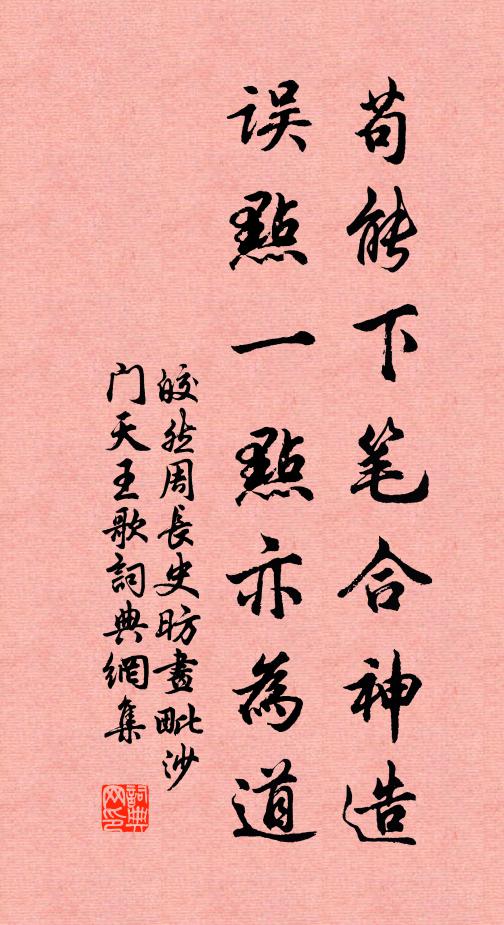 苟能下笔合神造
误點一點亦為道
皎然周長史昉畫毗沙
门天王歌詞典網集
詞典网印